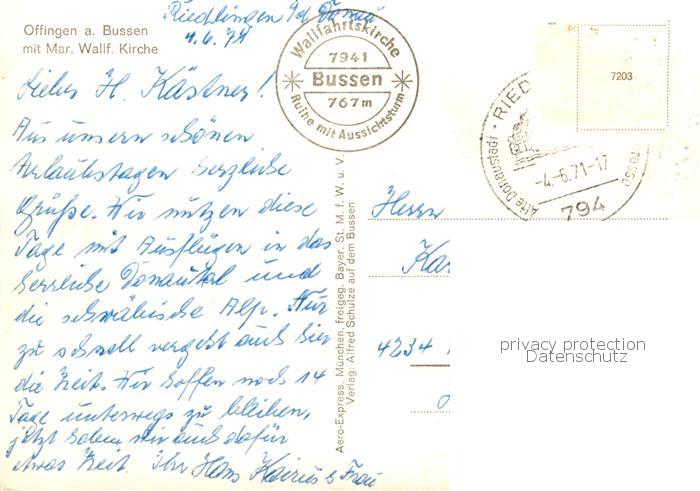 Offingen a. Bussen
mit Mar. Wallf. Kirche
Riedlingen a/d Donau
4.6.71
Wallfahrtskirche
7941
Bussen
767m
Ruine mit Aussichtsturm
7203
RIED
Alte Donaustadt
-4.-6.71-17
794
Lieber H. Kästner!
Aus unsern schönen
Urlaubstagen herzliche
Grüße. Wir nützen diese
Tage mit Ausflügen in das
herrliche Donautal und
die schwäbische Alp. Nur
zu schnell vergeht auch hier
die Zeit. Wir hoffen noch 14
Tage unterwegs zu bleiben,
jetzt haben wir auch dafür
etwas Zeit. Ihr Hans Kairies & Frau
Aero-Express, München, freigeg. Bayer. St. M. f. W. u. V.
Verlag: Alfred Schulze auf dem Bussen
Herrn
4234
privacy protection
Datenschutz